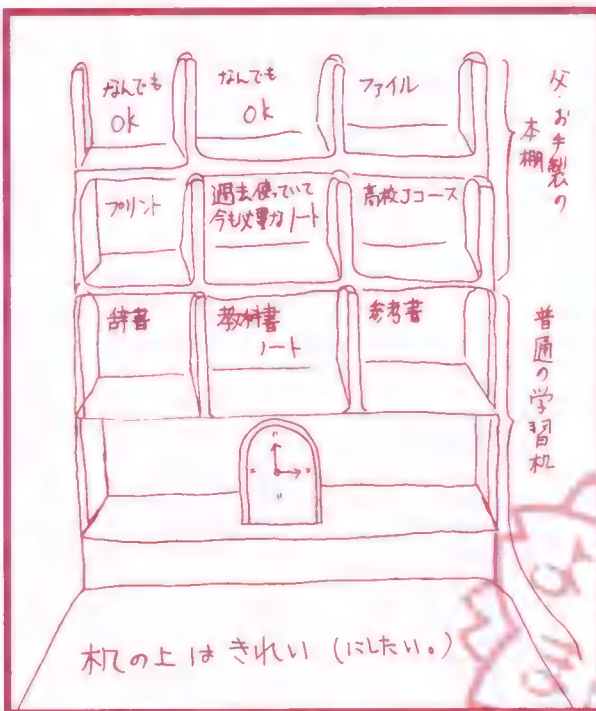 なんでも
OK
なんでも
OK
ファイル
プリント
過去使っていて
今も必要なノート
高校Jコース
辞書
教科書
ノート
参考書
父・お手製の
本棚
普通の学習机
机の上はきれい(にしたい。)